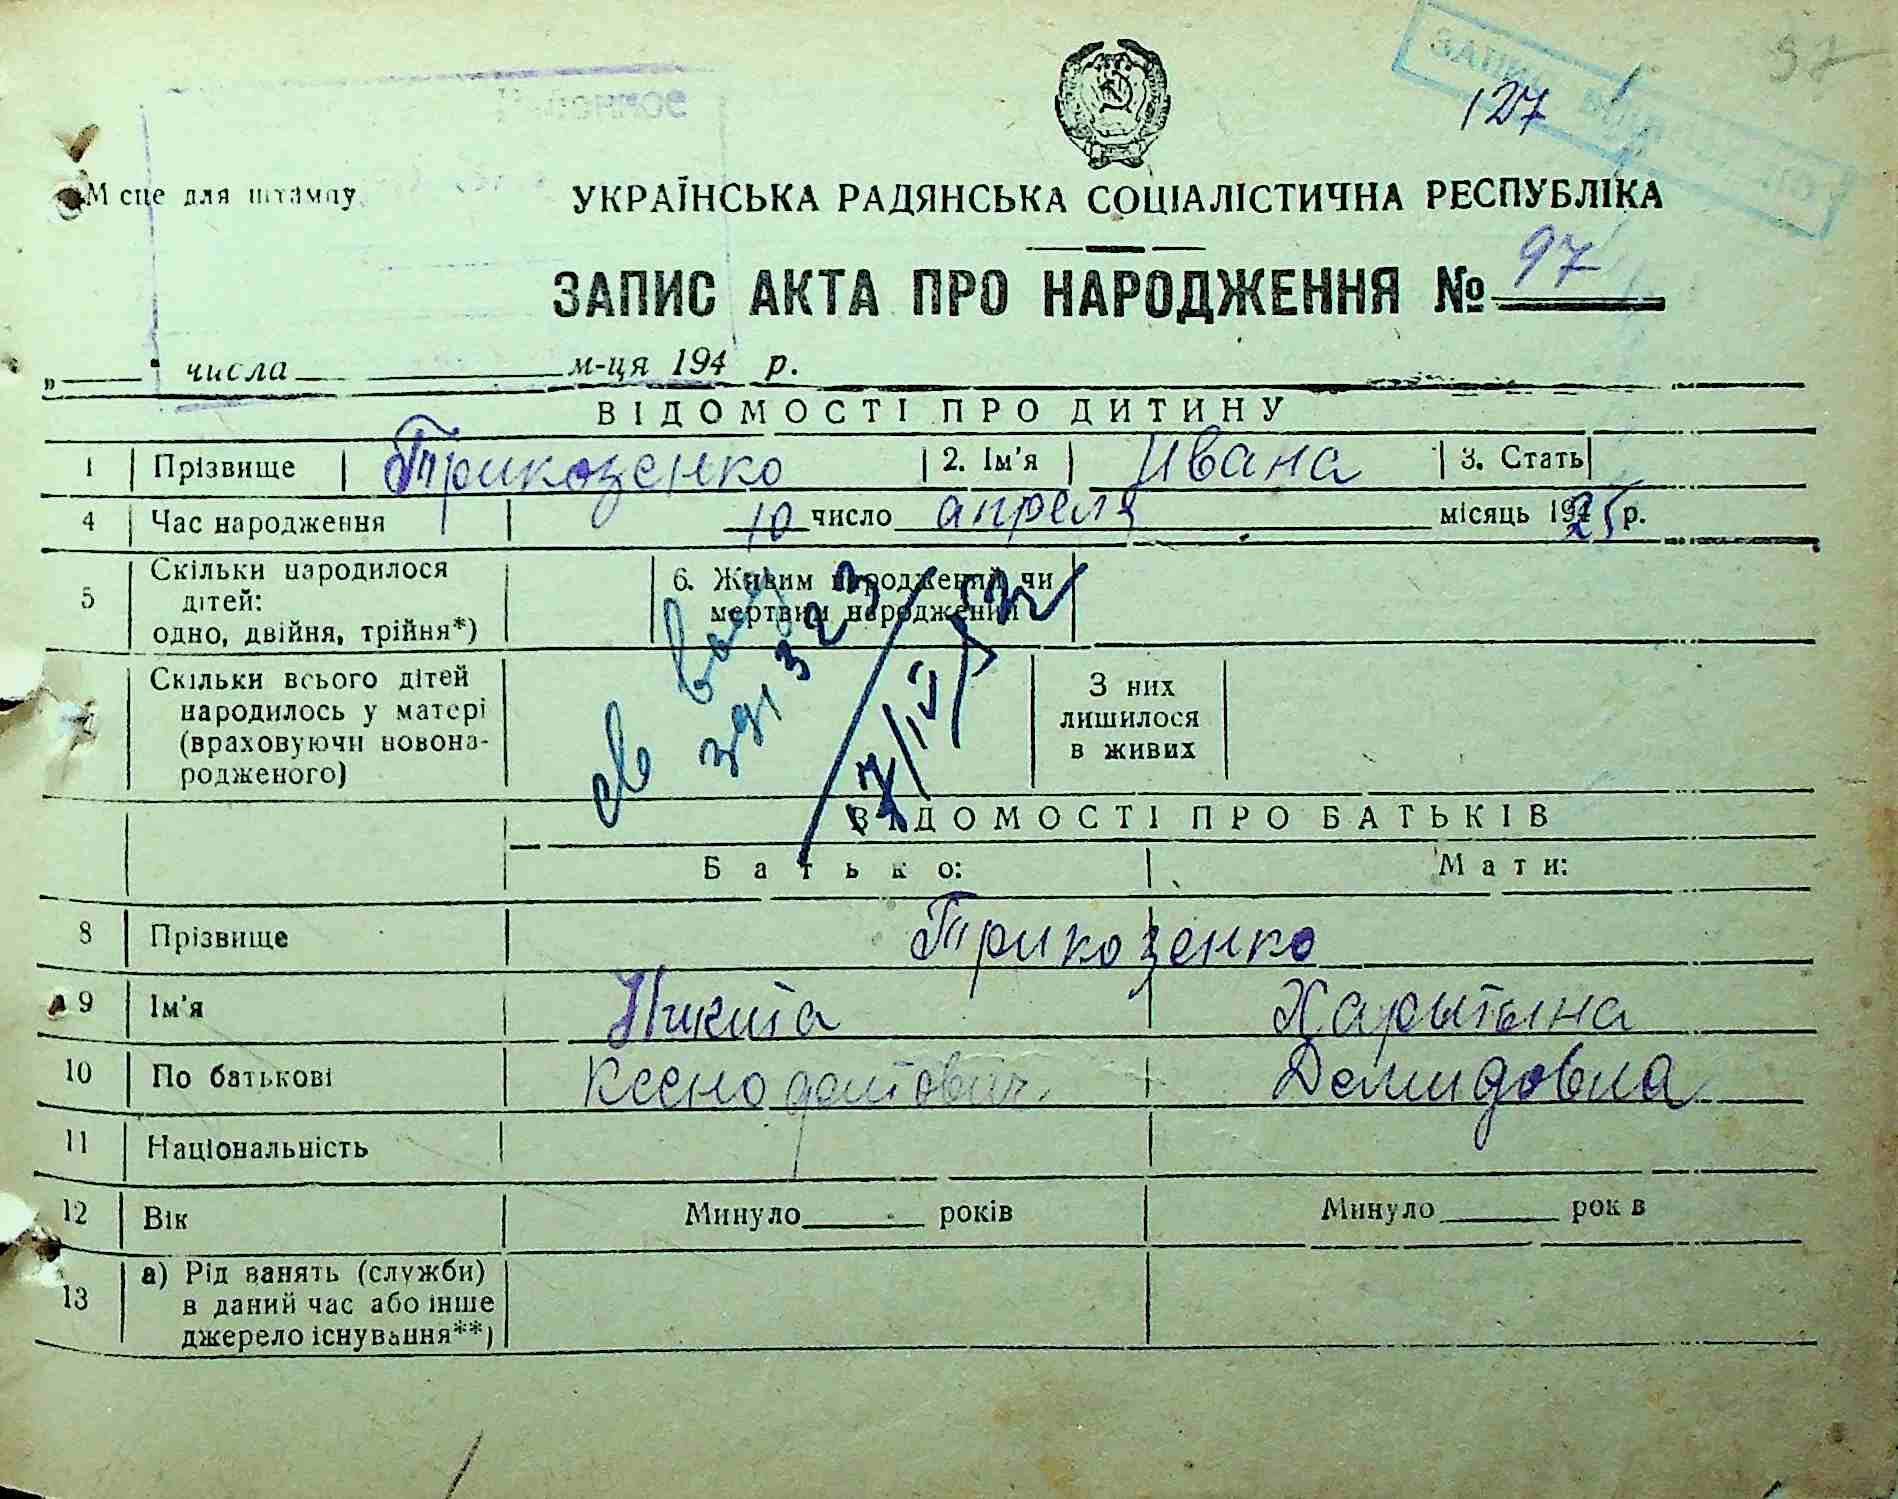 ЗАПИС ВІДНОВЛЕНО
97
127
Місце для штампу
УКРАЇНСЬКА РАДЯНСЬКА СОЦІАЛІСТИЧНА РЕСПУБЛІКА
ЗАПИС АКТА ПРО НАРОДЖЕННЯ № 97
„ " числа м-ця 194 р.
ВІДОМОСТІ ПРО ДИТИНУ
1 Прізвище Трикозенко 2. Ім'я Ивана 3. Стать
4 Час народження 10 число апреля місяць 1925 р.
5 Скільки народилося дітей: одно, двійня, трійня*) 6. Живим народжений чи мертвим народжений
св выд 391323 17/IV 52
Скільки всього дітей народилось у матері (враховуючи новонародженого) З них лишилося в живих
ВІДОМОСТІ ПРО БАТЬКІВ
Батько: Мати:
8 Прізвище Трикозенко
9 Ім'я Никита Харытына
10 По батькові Ксенофонтович Демидовна
11 Національність
12 Вік Минуло років Минуло рок в
13 а) Рід занять (служби) в даний час або інше джерело існування**)